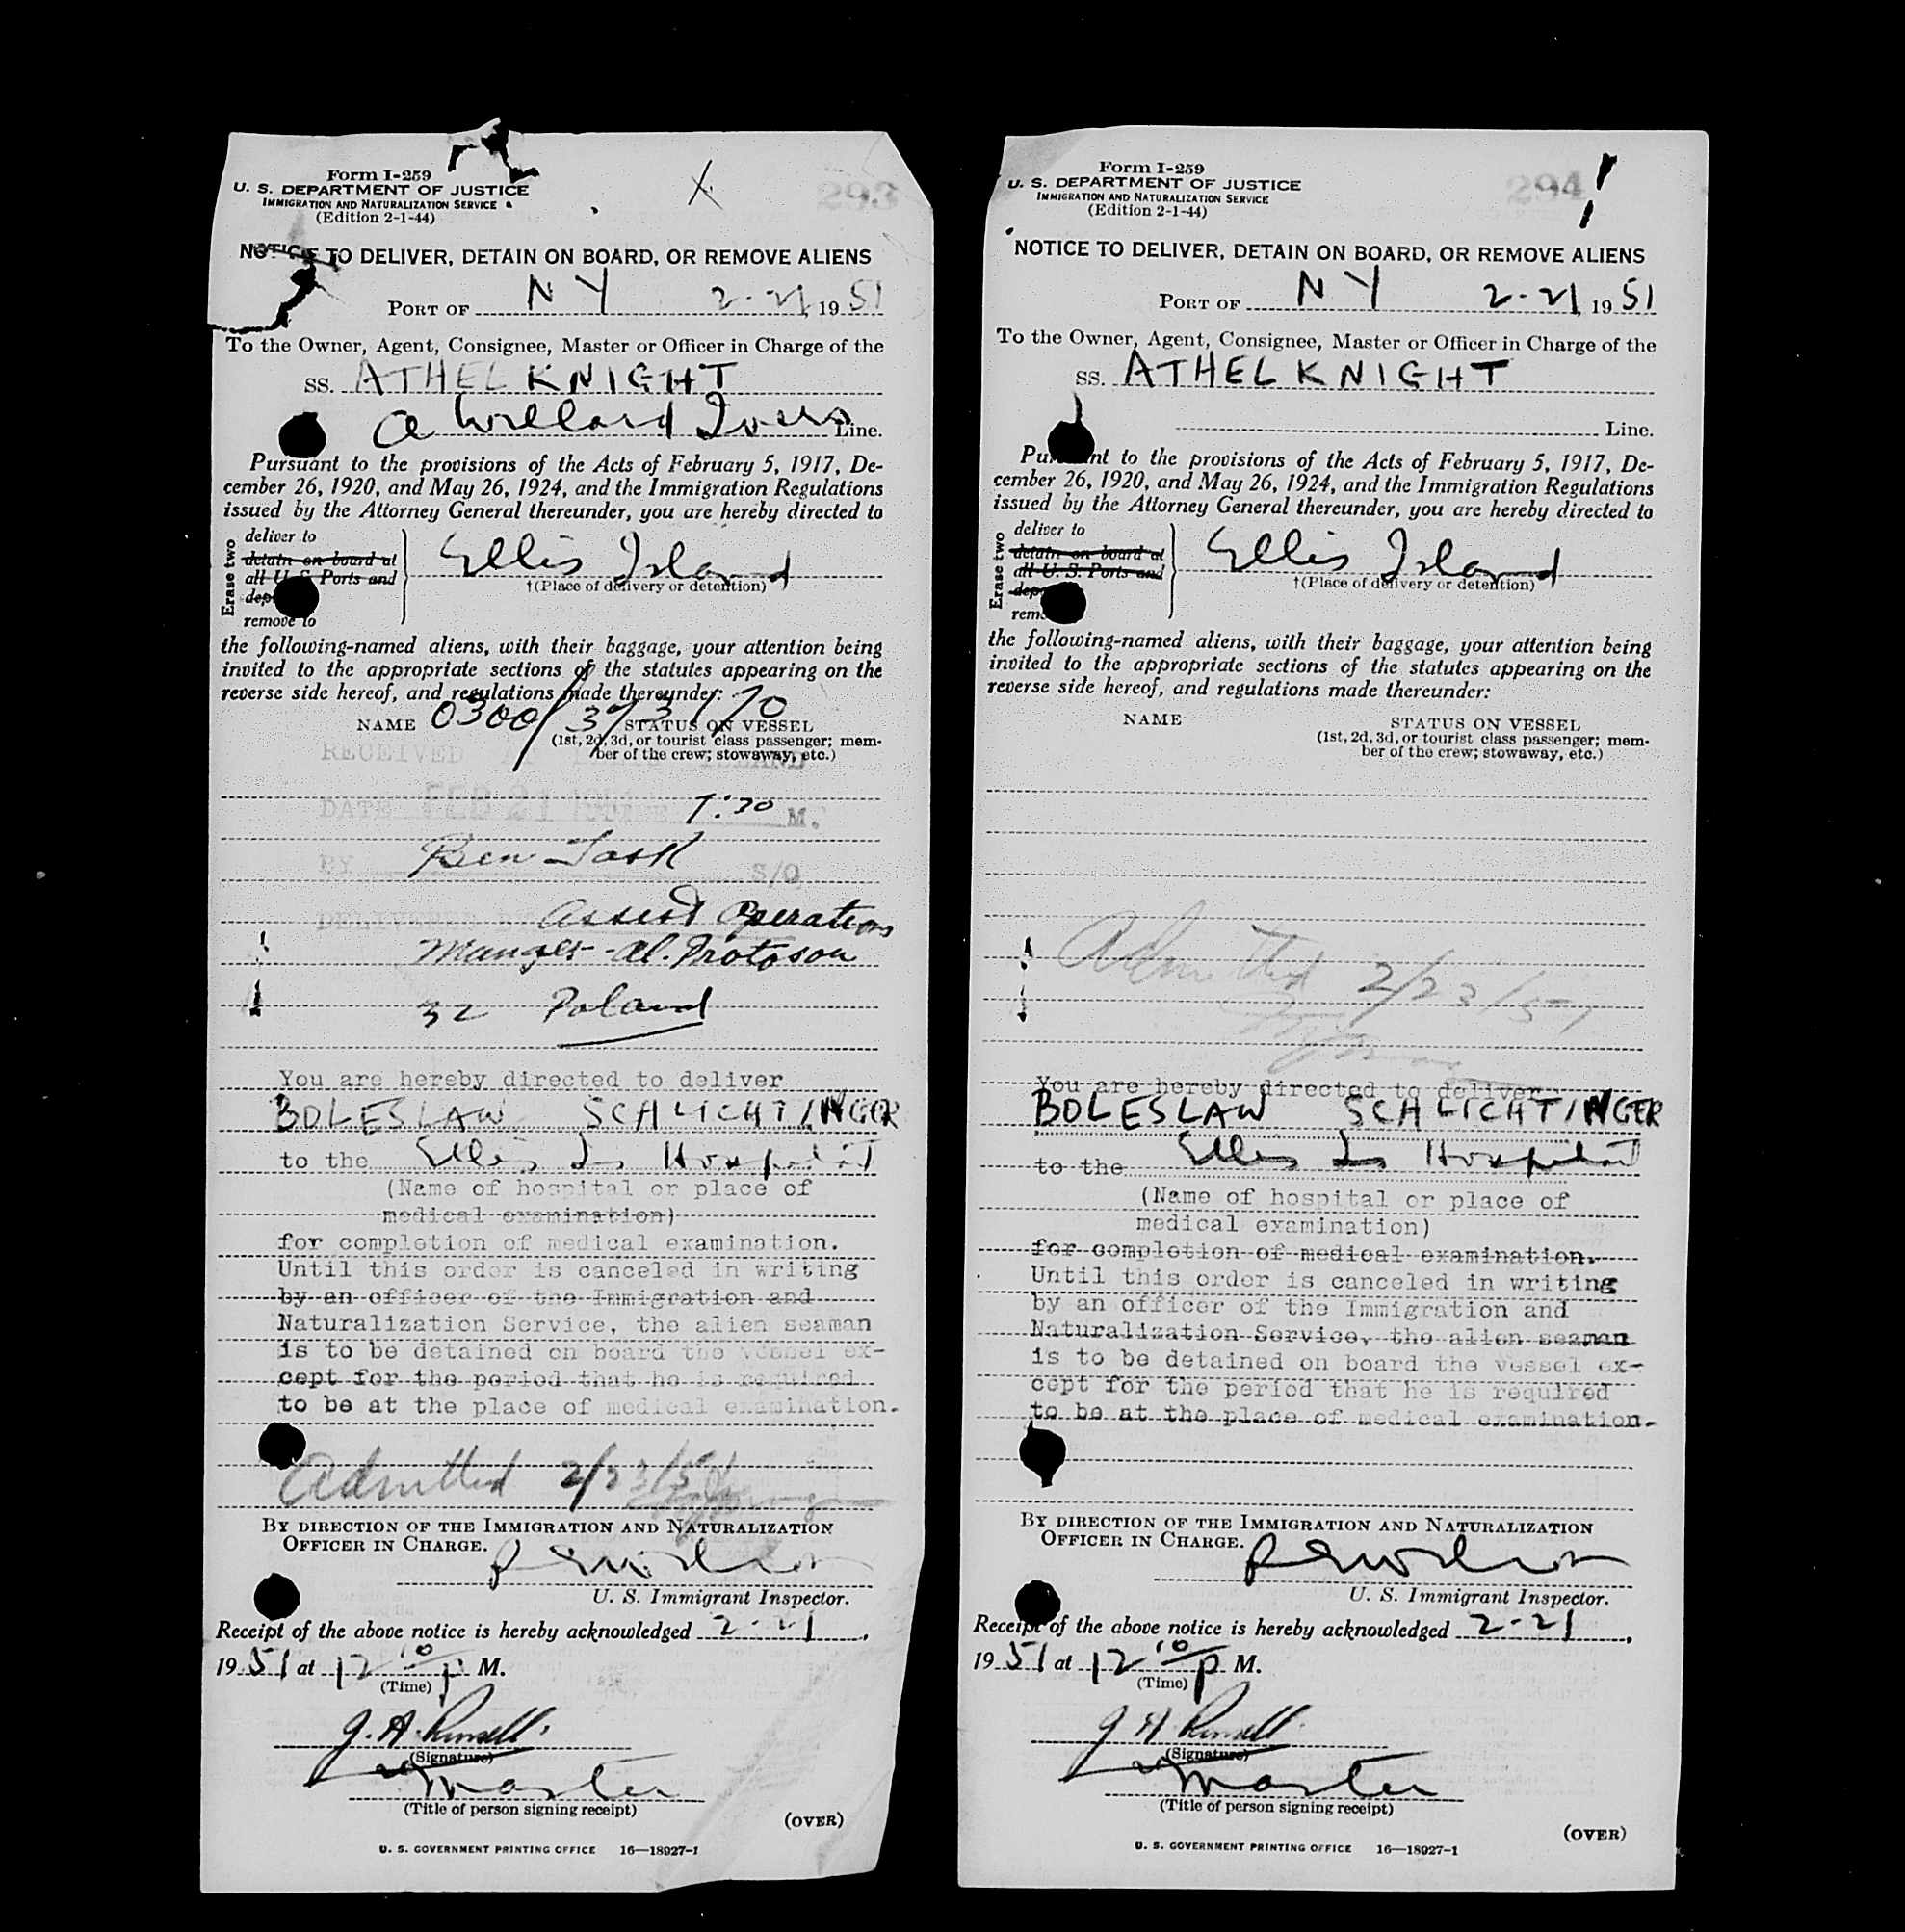 Form I-259
U. S. DEPARTMENT OF JUSTICE
IMMIGRATION AND NATURALIZATION SERVICE
(Edition 2-1-44)
X
293
NOTICE TO DELIVER, DETAIN ON BOARD, OR REMOVE ALIENS
PORT OF NY 2-21, 1951
To the Owner, Agent, Consignee, Master or Officer in Charge of the
SS. ATHELKNIGHT
a Willard Line.
Pursuant to the provisions of the Acts of February 5, 1917, De-
cember 26, 1920, and May 26, 1924, and the Immigration Regulations
issued by the Attorney General thereunder, you are hereby directed to
Erase two
deliver to
detain on board at
all U. S. Ports and
dep
remove to
Ellis Island
†(Place of delivery or detention)
the following-named aliens, with their baggage, your attention being
invited to the appropriate sections of the statutes appearing on the
reverse side hereof, and regulations made thereunder:
NAME 0300/ STATUS ON VESSEL
(1st, 2d, 3d, or tourist class passenger; mem-
ber of the crew; stowaway, etc.)
RECEIVED
DATE FEB 21 1:30 M.
BY Ben S/O
DELIVERED
Assist Operations
32 Poland
You are hereby directed to deliver
BOLESLAW SCHLICHTINGER
to the Ellis Is Hospital
(Name of hospital or place of
medical examination)
for completion of medical examination.
Until this order is canceled in writing
by an officer of the Immigration and
Naturalization Service, the alien seaman
is to be detained on board the vessel ex-
cept for the period that he is required
to be at the place of medical examination.
Admitted 2/23/51
BY DIRECTION OF THE IMMIGRATION AND NATURALIZATION
OFFICER IN CHARGE.
U. S. Immigrant Inspector.
Receipt of the above notice is hereby acknowledged 2-21,
1951 at 12 10 p M.
(Time)
J. A.
(Signature)
Master
(Title of person signing receipt)
(OVER)
U. S. GOVERNMENT PRINTING OFFICE 16—18927-1
Form I-259
U. S. DEPARTMENT OF JUSTICE
IMMIGRATION AND NATURALIZATION SERVICE
(Edition 2-1-44)
294
NOTICE TO DELIVER, DETAIN ON BOARD, OR REMOVE ALIENS
PORT OF NY 2-21, 1951
To the Owner, Agent, Consignee, Master or Officer in Charge of the
SS. ATHELKNIGHT
Line.
Pu nt to the provisions of the Acts of February 5, 1917, De-
cember 26, 1920, and May 26, 1924, and the Immigration Regulations
issued by the Attorney General thereunder, you are hereby directed to
Erase two
deliver to
detain on board at
all U. S. Ports and
dep
rem
Ellis Island
†(Place of delivery or detention)
the following-named aliens, with their baggage, your attention being
invited to the appropriate sections of the statutes appearing on the
reverse side hereof, and regulations made thereunder:
NAME STATUS ON VESSEL
(1st, 2d, 3d, or tourist class passenger; mem-
ber of the crew; stowaway, etc.)
Admitted 2/23/51
You are hereby directed to deliver
BOLESLAW SCHLICHTINGER
to the Ellis Is Hospital
(Name of hospital or place of
medical examination)
for completion of medical examination.
Until this order is canceled in writing
by an officer of the Immigration and
Naturalization Service, the alien seaman
is to be detained on board the vessel ex-
cept for the period that he is required
to be at the place of medical examination.
BY DIRECTION OF THE IMMIGRATION AND NATURALIZATION
OFFICER IN CHARGE.
U. S. Immigrant Inspector.
Receipt of the above notice is hereby acknowledged 2-21,
1951 at 12 10 p M.
(Time)
(Signature)
Master
(Title of person signing receipt)
(OVER)
U. S. GOVERNMENT PRINTING OFFICE 16—18927-1